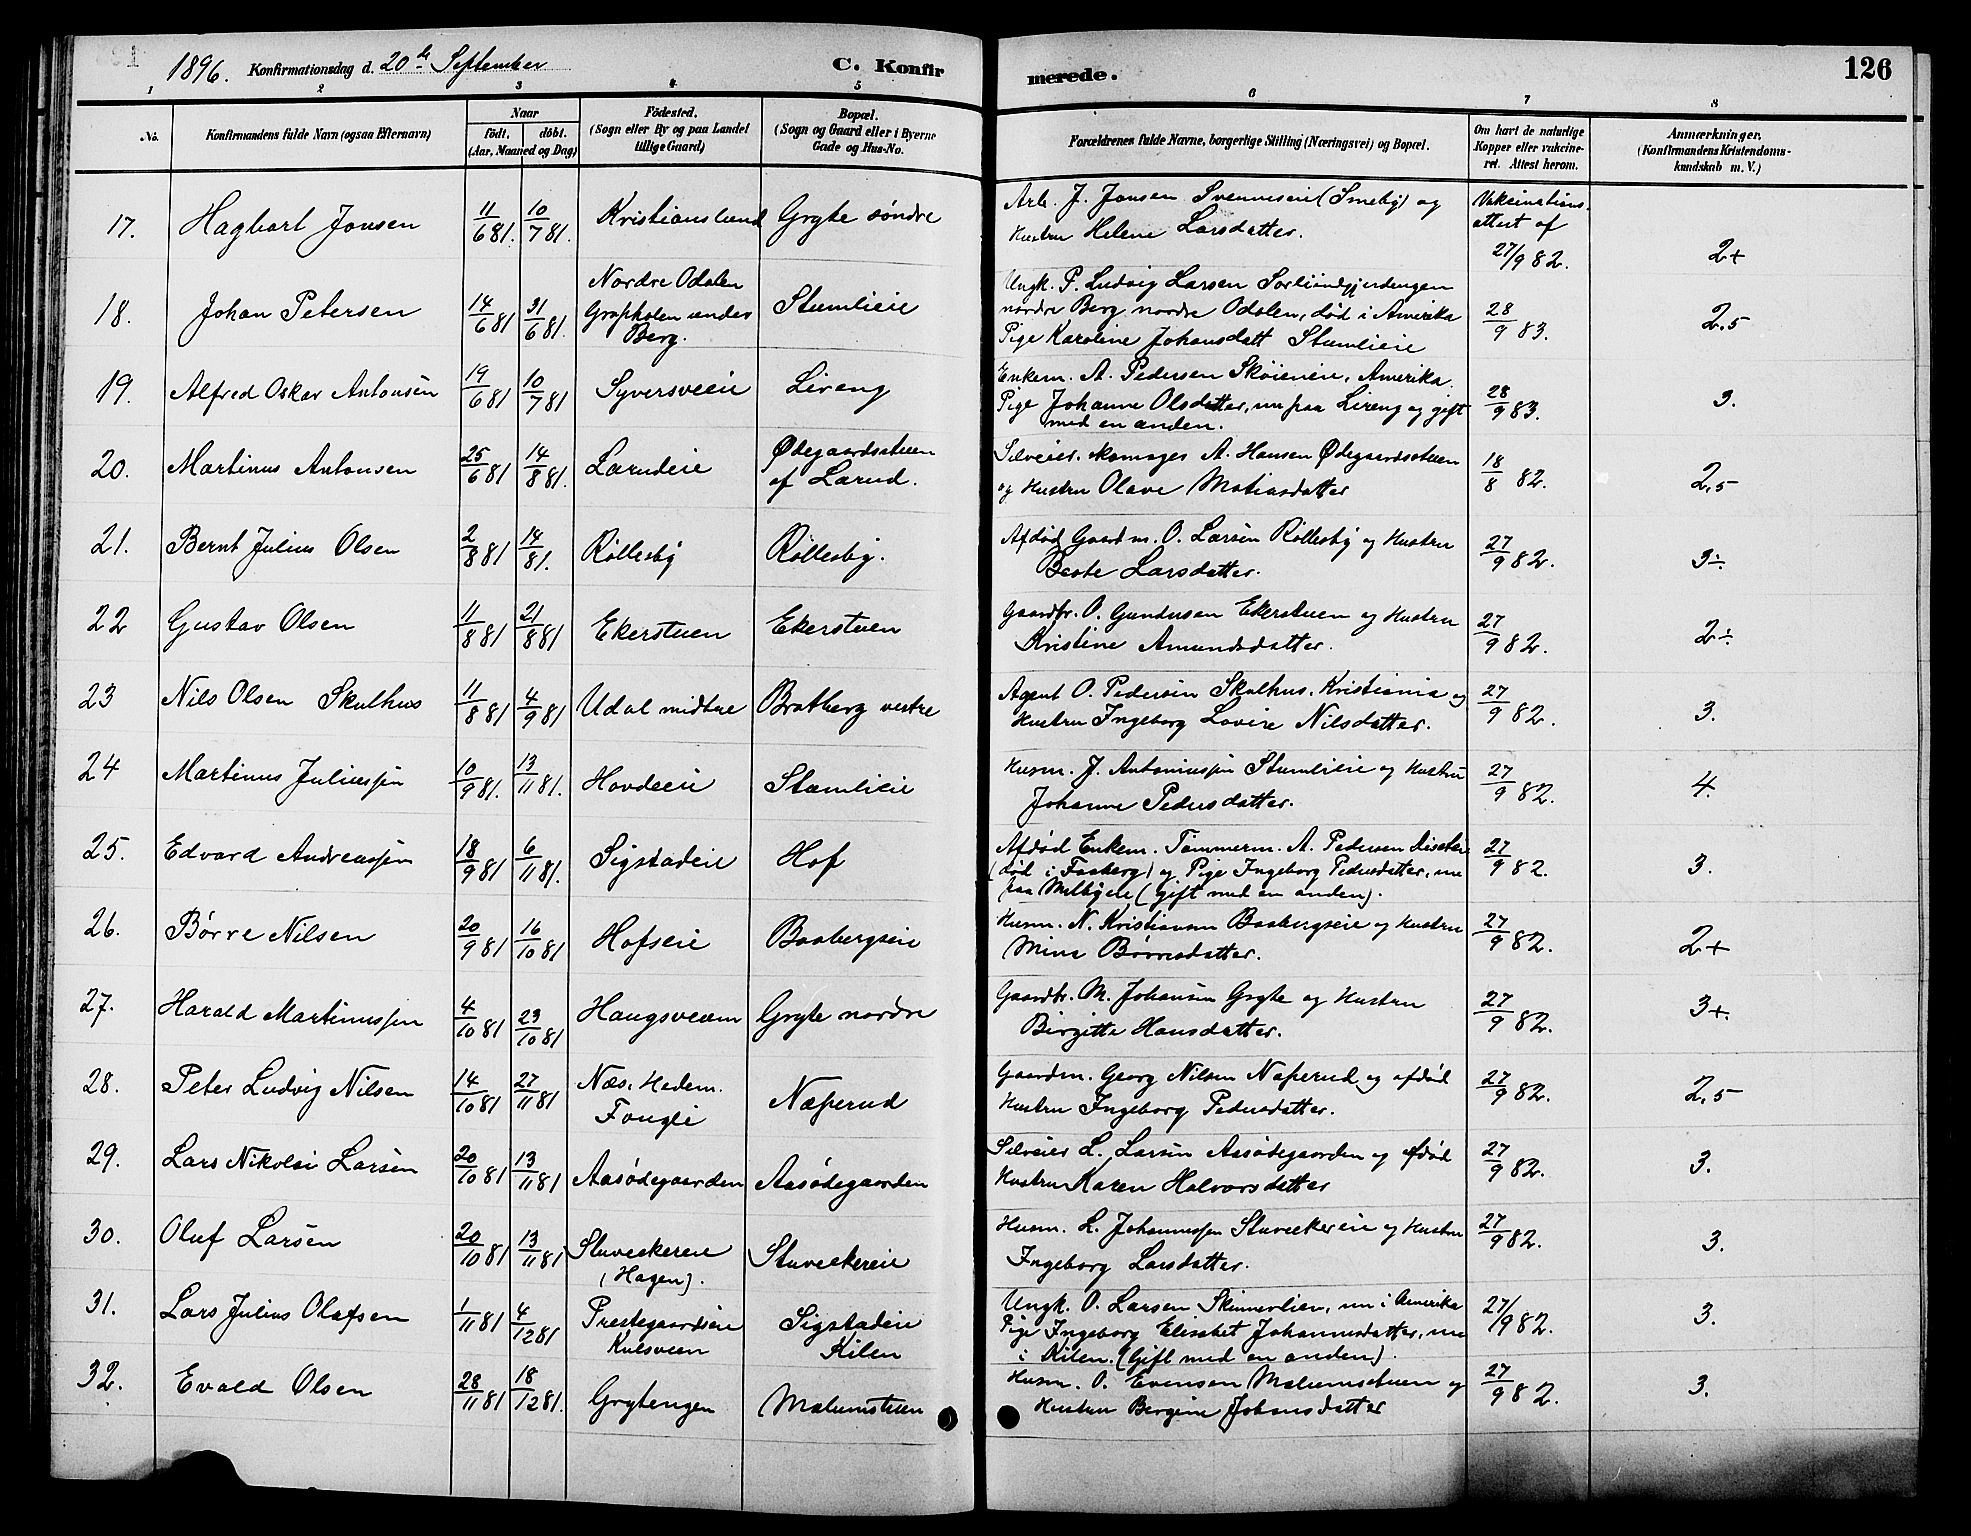 1896. Konfirmationsdag d. 20de September C. Konfir merede. 126
1 2 3 4 5 6 7 8
No. Konfirmandens fulde Navn (ogsaa Efternavn) Naar født. døbt. (Aar, Maaned og Dag) Fødested. (Sogn eller By og paa Landet tillige Gaard) Bopæl. (Sogn og Gaard eller i Byerne Gade og Hus-No. Forældrenes fulde Navne, borgerlige Stilling (Næringsvei) og Bopæl. Om havt de naturlige Kopper eller vakcineret. Attest herom. Anmærkninger, (Konfirmandens Kristendomskundskab m. V.)
17. Hagbart Jonsen 11/6 81. 10/7 81. Kristianslund Gryte søndre Arb. J. Jonsen Svennuseie (Smeby) og Vakcinations-
Hustru Helene Larsdatter. attest af
27/9 82. 2+
18. Johan Petersen 14/6 81 31/6 81. Nordre Odalen Stumlieie Ungk. P. Ludvig Larsen Sorliindgjerdengen
Grapholen under nordre Berg nordre Odalen, død i Amerika 28/9 83. 2,5
Berg. Pige Karoline Johansdatt Stumlieie
19. Alfred Oskar Antonsen 19/6 81 10/7 81 Syversveie Lireng Enkem. A. Pedersen Skøieneie, Amerika.
Pige Johanne Olsdatter, nu paa Lireng og gift 28/9 83. 3.
med en anden.
20. Martinus Antonsen 25/6 81 14/8 81. Larudeie Ødegaardsstuen Selveier, skomager A. Hansen Ødegaardsstuen 18/8 82. 2,5
af Larud. og Hustru Olave Matiasdatter
21. Bernt Julius Olsen 2/8 81 14/81. Røllesby Røllesby. Afdød Gaardm. O. Larsen Røllesby og Hustru 27/9 82. 3÷.
Beate Larsdatter.
22 Gustav Olsen 11/8 81 21/8 81 Ekerstuen Ekerstuen Gaardbr. O. Gundersen Ekerstuen og Hustru 27/9 82. 2÷
Kristine Amundsdatter.
23 Nils Olsen Skulhus 11/8 81 4/9 81 Udal midtre Bratberg vestre Agent O. Pedersen Skulhus, Kristiania og 27/9 82. 3.
Hustru Ingeborg Lovise Nilsdatter.
24 Martinus Juliussen 10/9 81. 13/11 81. Hovdeeie Stumlieie Husm. J. Antoniussen Stumlieie og Hustru 27/9 82. 4.
Johanne Pedersdatter.
25. Edvard Andreassen 18/9 81 6/11 81. Sigstadeie Hof Afdød Enkem. Tømmerm. A. Pedersen
(død i Faaberg) og Pige Ingeborg Pedersdatter, nu 27/9 82. 3.
paa Melbyeie (gift med en anden).
26. Børre Nilsen 20/9 81 16/10 81 Hofseie Baabergseie Husm. N. Kristiansen Baabergseie og Hustru 27/9 82. 2+
Mina Børresdatter.
27. Harald Martinussen 4/10 81 23/10 81 Haugsveen Gryte nordre Gaardbr. M. Johansen Gryte og Hustru 27/9 82. 3+.
Birgitte Hansdatter.
28. Peter Ludvig Nilsen 14/10 81 27/11 81 Næs, Hedem. Næperud Gaardm. Georg Nilsen Næperud og afdød 27/9 82. 2,5
Fougli Hustru Ingeborg Pedersdatter.
29. Lars Nikolai Larsen 20/10 81 13/11 81 Aasødegaarden Aasødegaarden Selveier L. Larsen Aasødegaarden og afdød 27/9 82. 3.
Hustru Karen Halvorsdatter
30. Oluf Larsen 20/10 81 13/11 81 Stuveekereie Stuveekereie Husm. L. Johannessen Stuveekereie og Hustru 27/9 82. 3.
(Hagen). Ingeborg Larsdatter.
31. Lars Julius Olafsen 1/11 81 4/12 81 Prestegaardseie Sigstadeie Ungk. O. Larsen Skinnerlien, nu i Amerika 27/9 82. 3.
Kulsveen Kilen Pige Ingeborg Elisabet Johannesdatter, nu
i Kilen. (Gift med en anden).
32. Evald Olsen 28/11 81 18/12 81. Grytengen Malumstuen Husm. O. Evensen Malumstuen og 27/9 82. 3.
Hustru Bergine Johansdatter